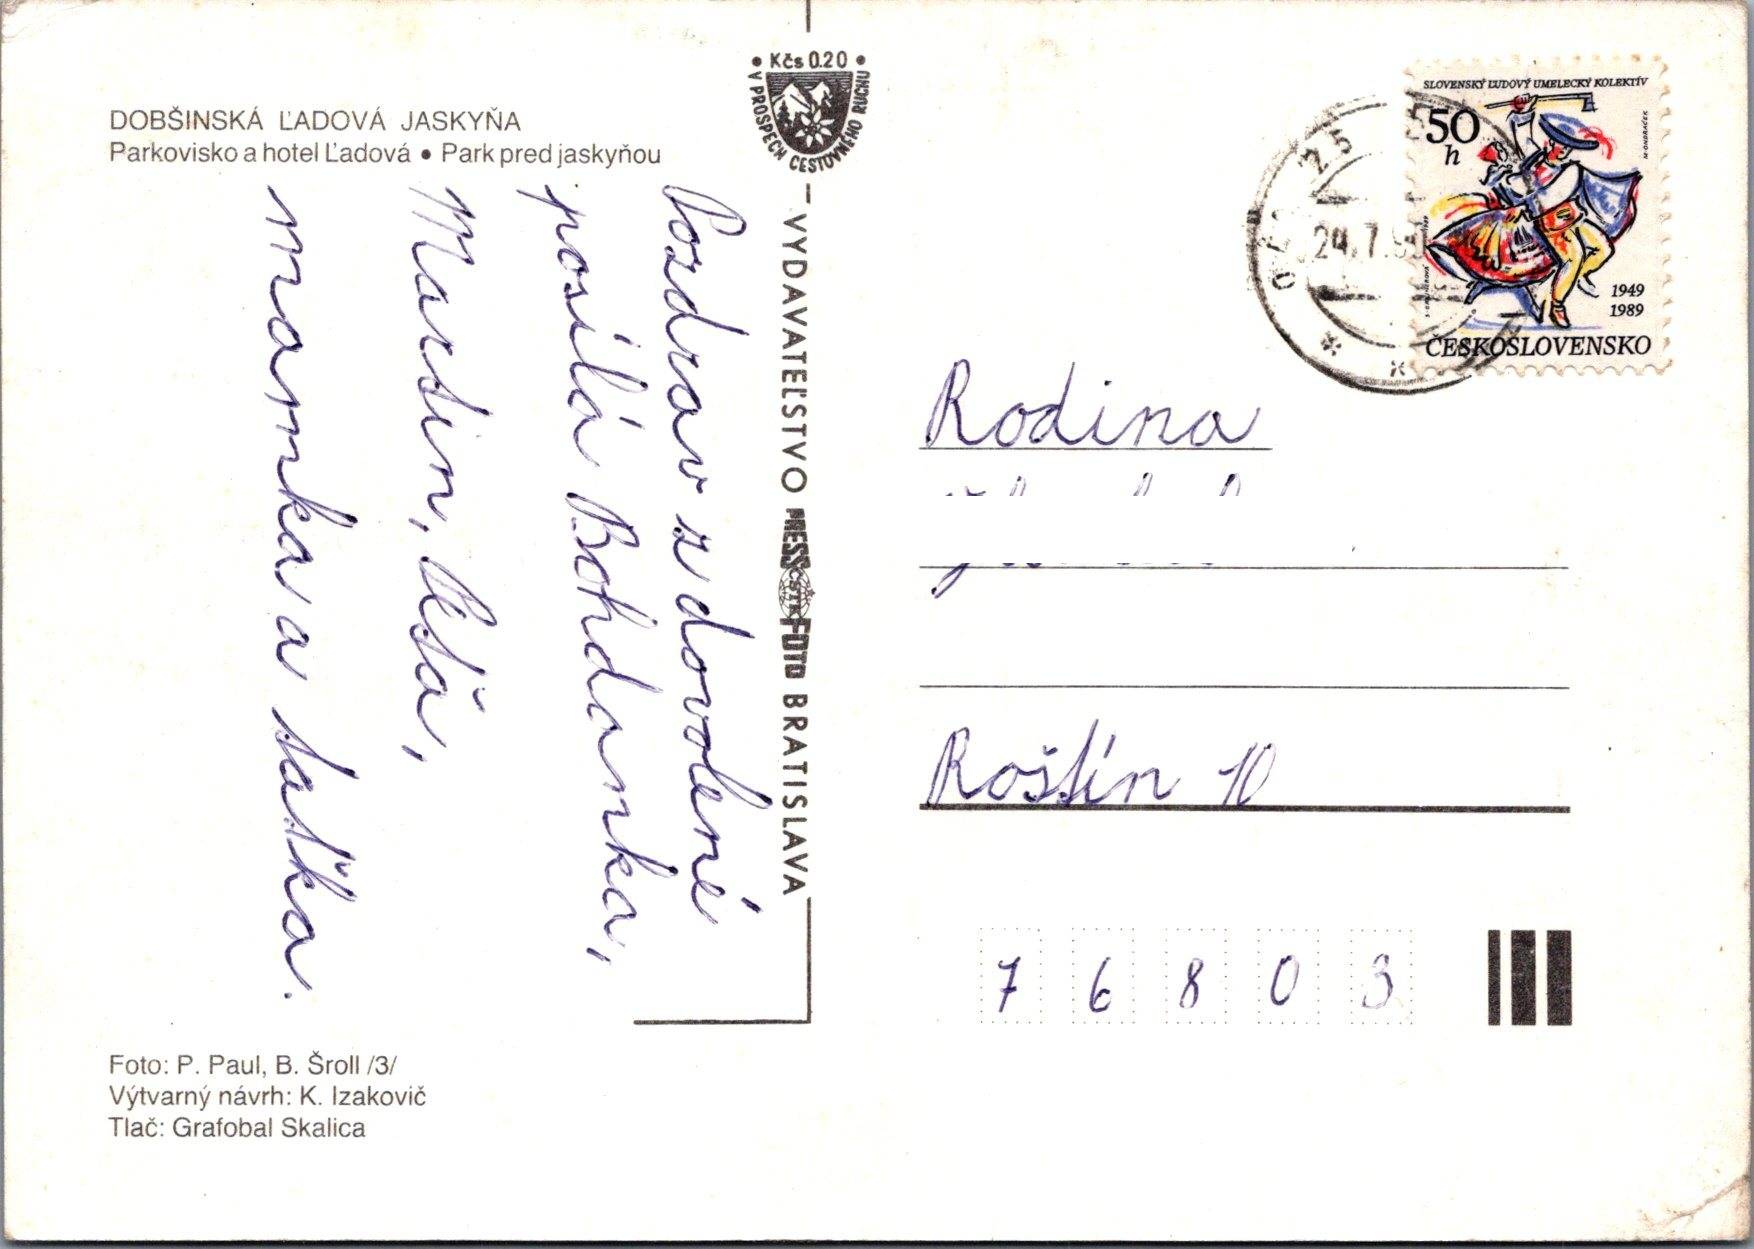 DOBŠINSKÁ ĽADOVÁ JASKYŇA
Parkovisko a hotel Ľadová • Park pred jaskyňou
Pozdrav z dovolené
posílá Bohdanka,
Martin, Péťa,
mamka a taťka.
Foto: P. Paul, B. Šroll /3/
Výtvarný návrh: K. Izakovič
Tlač: Grafobal Skalica
• Kčs 0.20 •
V PROSPECH CESTOVNÉHO RUCHU
VYDAVATEĽSTVO PRESSFOTO BRATISLAVA
ČSTK
SLOVENSKÝ ĽUDOVÝ UMELECKÝ KOLEKTÍV
50
h
M. ONDRÁČEK
1949
1989
ČESKOSLOVENSKO
Rodina
Roštín 10
7 6 8 0 3